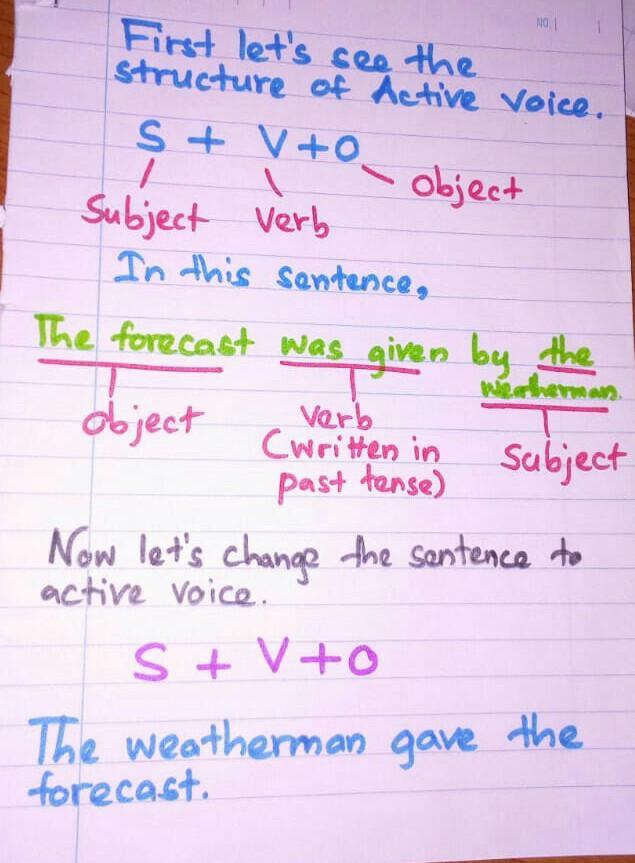 NO
First let's see the
structure of Active Voice.
S + V+O
Object
Subject Verb
In this sentence,
The forecast was given by the
weatherman.
Object Verb
(written in
past tense)
Subject
Now let's change the sentence to
active voice.
S + V+O
The weatherman gave the
forecast.